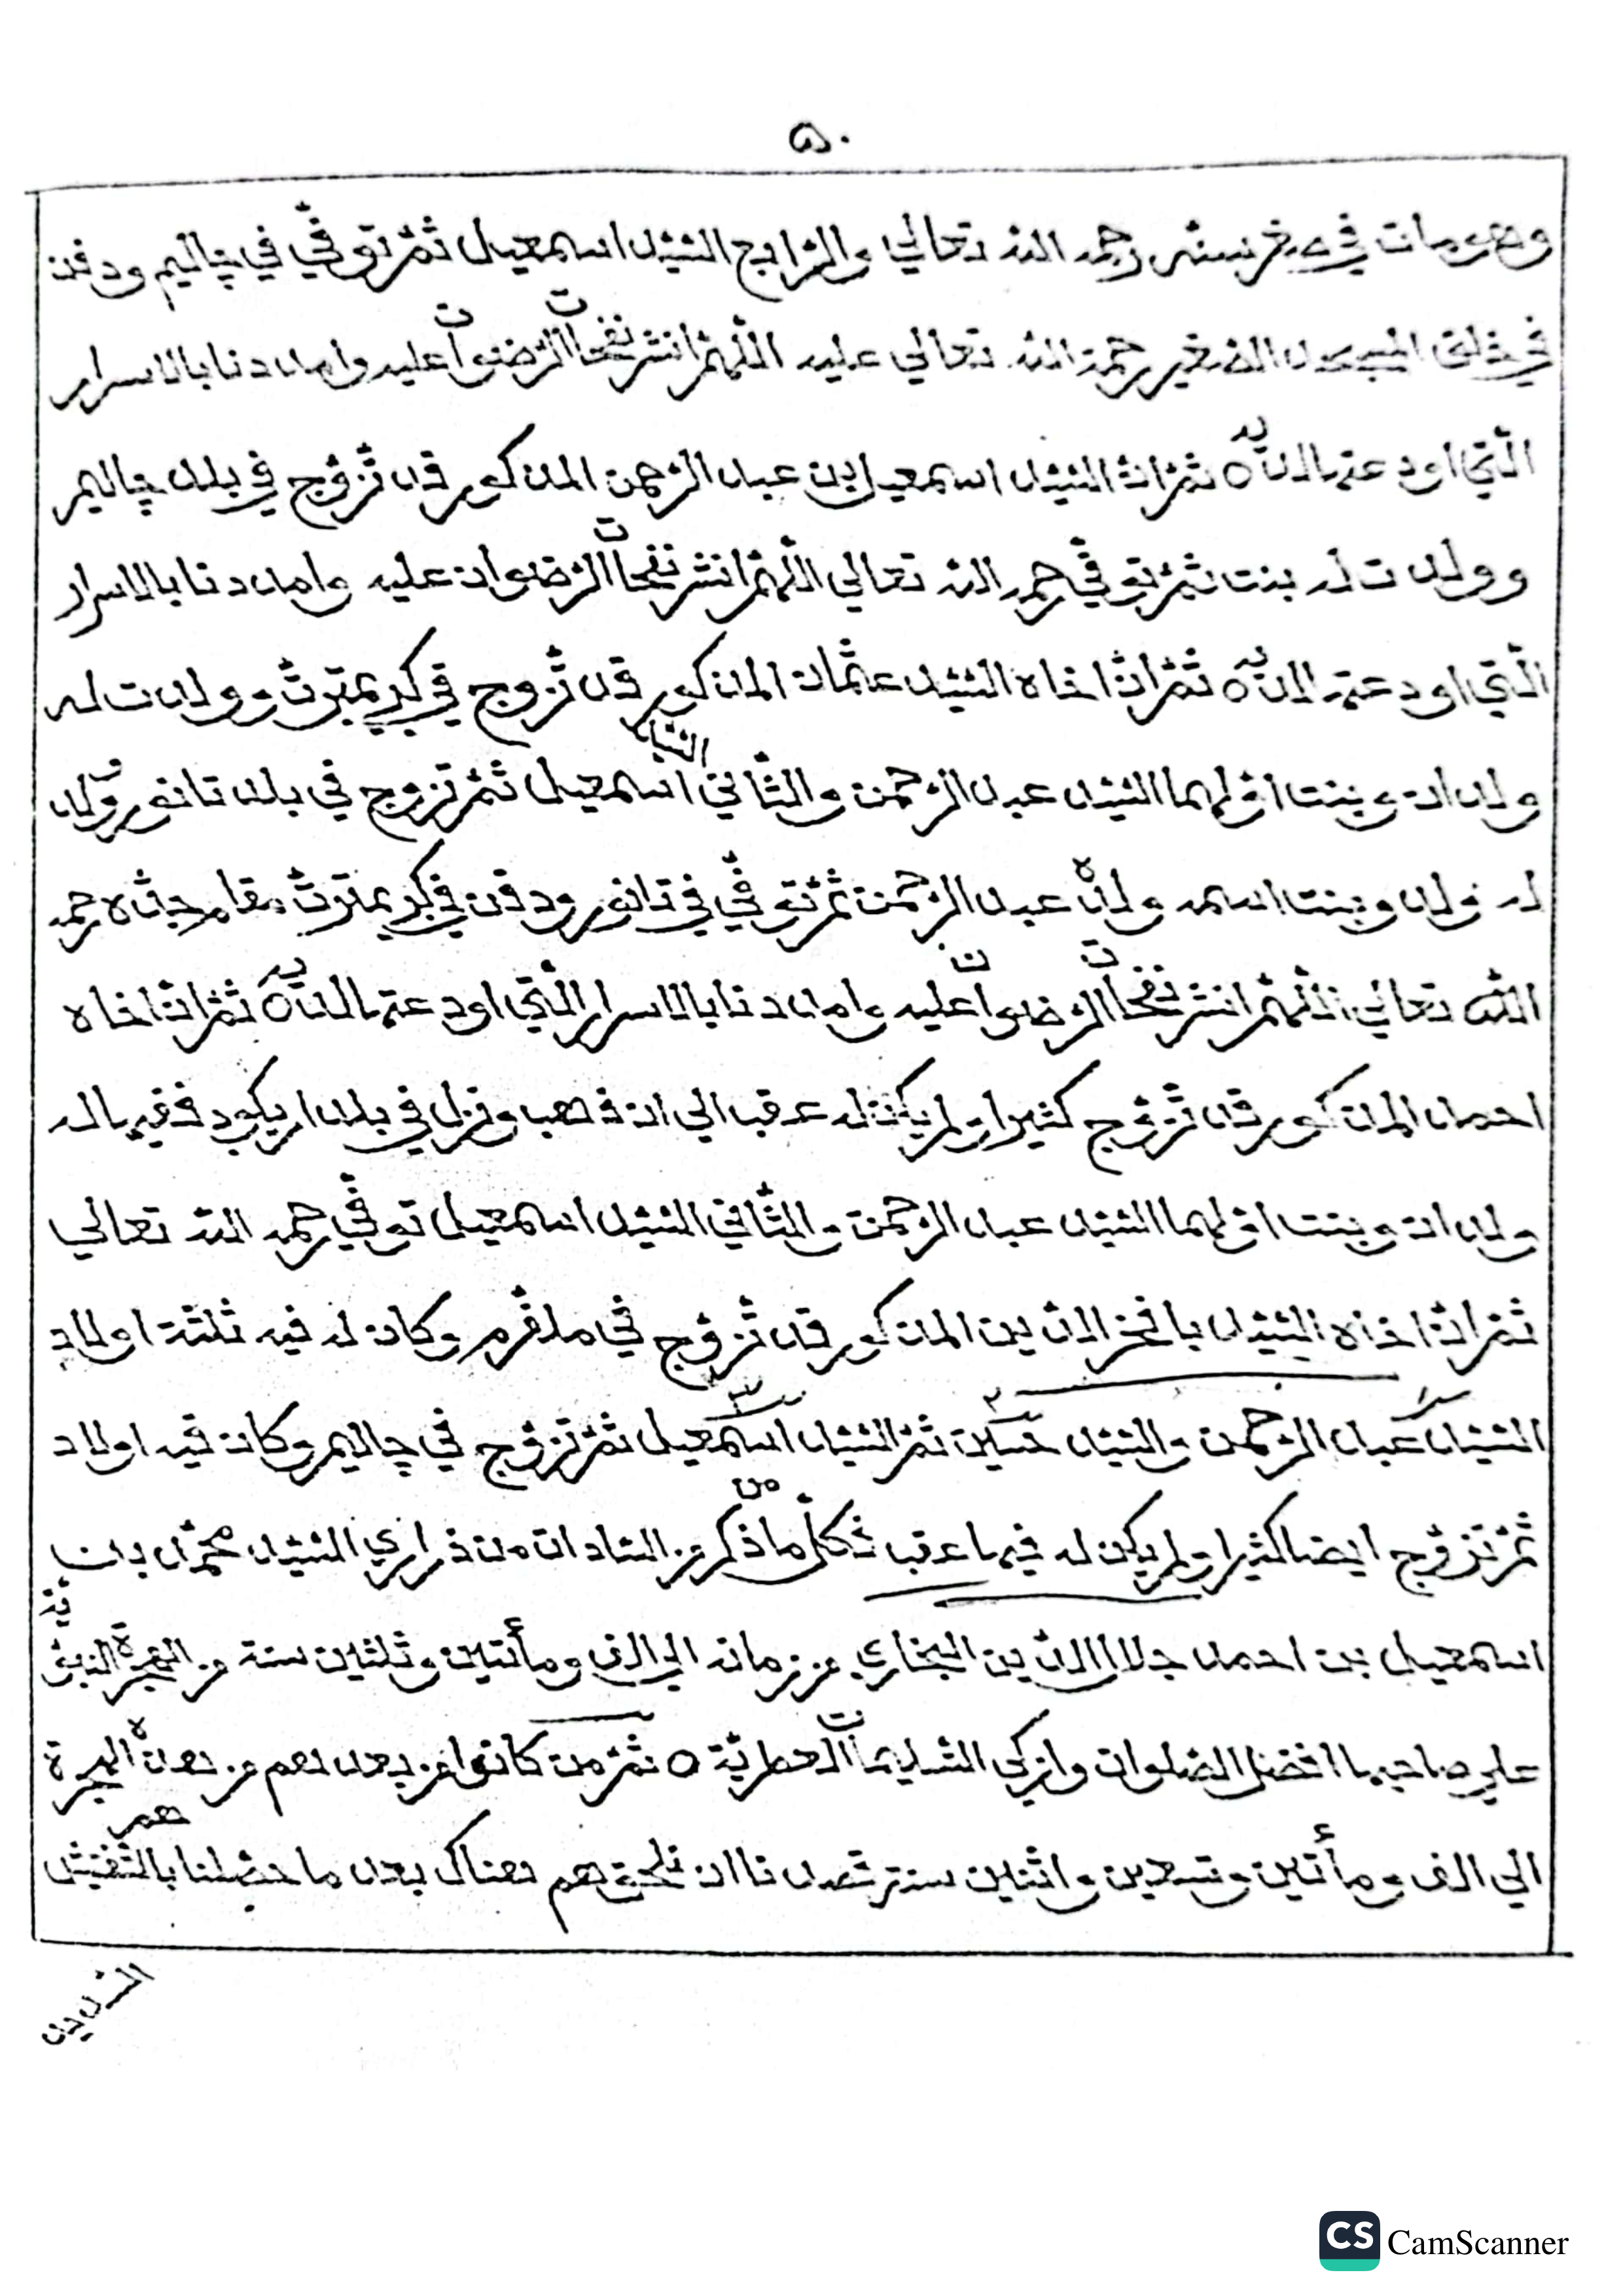 ٥٠
وهو مات في صغر سنه رحمه الله تعالي والرّابع السّيّد اسمعيل ثمّ توفّي في چاليم ودفن
في المسجد الصّغير رحمة الله تعالي عليه اللّهمّ انشر نفحات الرّضوان عليه وامددنا بالاسرار
الّتي اودعتها لديه ۞ ثمّ انّ السّيّد اسمعيل بن عبد الرّحمن المذكور قد تزوّج في بلد چاليم
وولدت له بنت ثمّ توفّي رحمه الله تعالي اللّهمّ انشر نفحات الرّضوان عليه وامددنا بالاسرار
الّتي اودعتها لديه ۞ ثمّ انّ اخاه السّيّد عثمان المذكور قد تزوج في وولدت له
ولدان وبنت اوّلهما السّيّد عبد الرّحمن والثّاني السّيّد اسمعيل ثمّ تزوج في بلد تانور وولد
له ولد وبنت اسمه ولده عبد الرّحمن ثمّ توفّي في تانور ودفن في مقام جدّه رحمه
الله تعالي اللّهمّ انشر نفحات الرّضوان عليه وامددنا بالاسرار الّتي اودعتها لديه ۞ ثمّ انّ اخاه
احمد المذكور قد تزوّج كثيرا ولم يكن له عقب الي ان ذهب ونزل في بلد اريكود ففيها له
ولدان وبنت اوّلهما السّيّد عبد الرّحمن والثّاني السّيّد اسمعيل توفّي رحمه الله تعالي
ثمّ انّ اخاه السّيّد بافخر الدّين المذكور قد تزوّج في ملفّرم وكان له فيه ثلثة اولاد
السّيّد عبد الرّحمن والسّيّد حسين ثمّ السّيّد اسمعيل ثمّ تزوّج في چاليم وكان فيه اولاد
ثمّ تزوّج ايضا كثيرا ولم يكن له فيها عقب فكلّ من ما ذكر من السّادات من ذراري السّيّد محمّد بن
اسمعيل بن احمد جلال الدّين البخاري من زمانه الي الف ومأتين وثلثين سنة من الهجرة النّبويّة
علي صاحبها افضل الصّلوات وازكي التّسليمات العطريّة ۞ ثمّ من كانوا من بعدهم من بعد هذه الهجرة
الي الف ومأتين وتسعين واثنين سنة قصدنا ان نلحق هم هناك بعد ما حصلنا بالتّفتيش هم
الشّديد
CS CamScanner